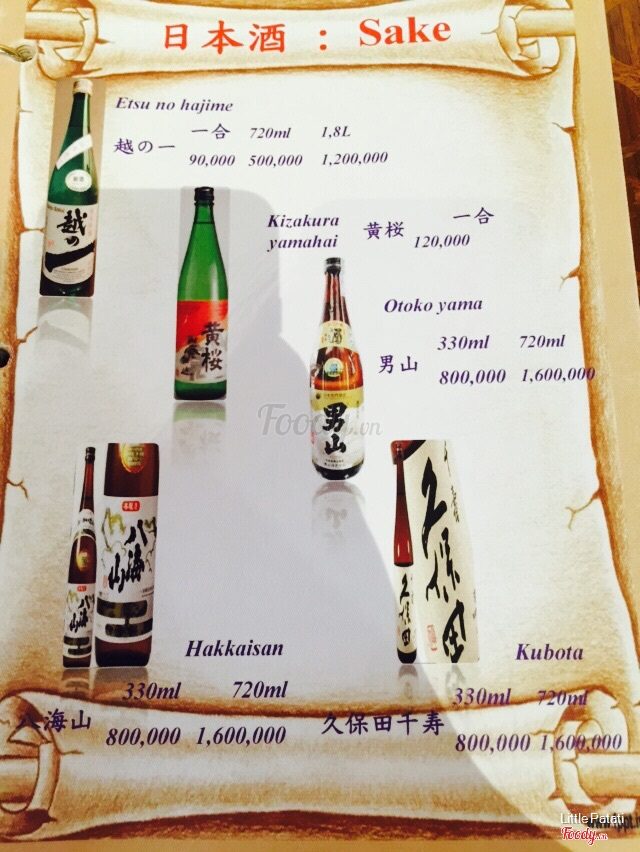 日本酒 : Sake
Etsu no hajime
一合 720ml 1,8L
越の一
90,000 500,000 1,200,000
越の一
Kizakura
yamahai
黄桜
一合
120,000
黄桜
Otoko yama
330ml 720ml
男山
800,000 1,600,000
男山
Foody.vn
八海山
八海山
久保田
久保田
千寿
Hakkaisan
330ml 720ml
八海山
800,000 1,600,000
Kubota
330ml 720ml
久保田千寿
800,000 1,600,000
Little Patati
Foody.vn